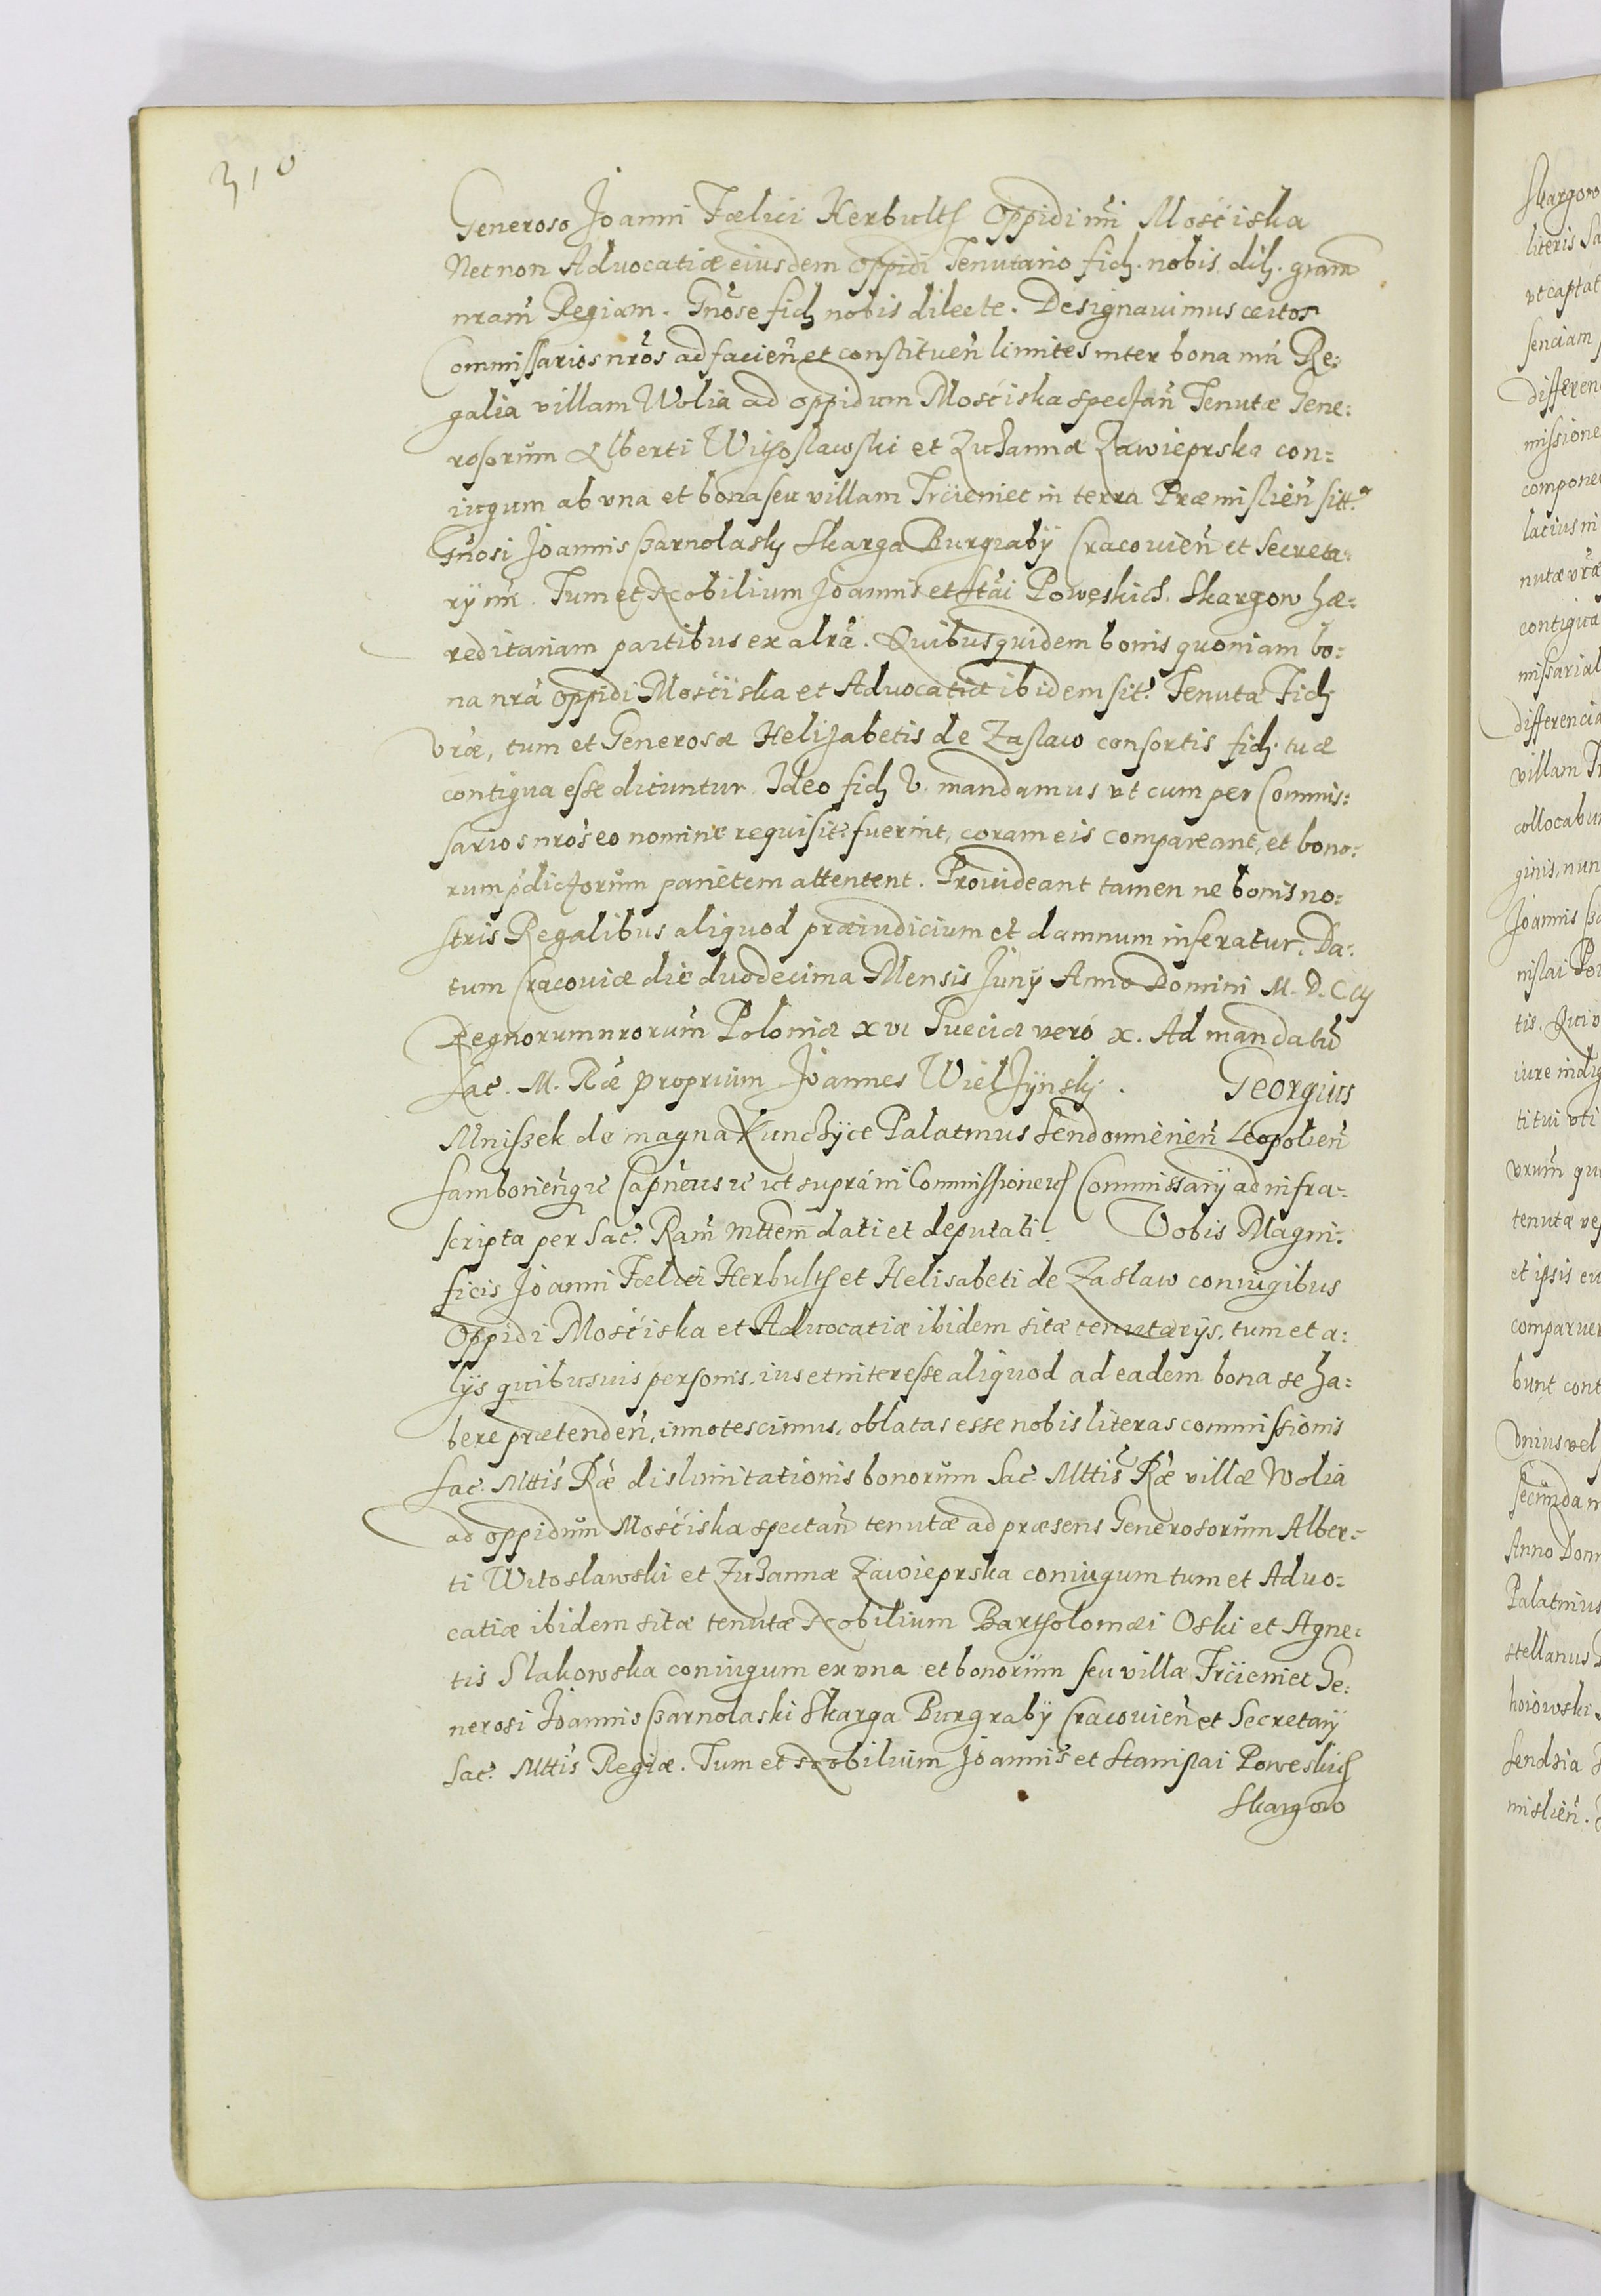 310
Generoso Joanni Fœlici Herbulth Oppidi nri Mościska
Necnon Advocatiæ eiusdem oppidi Tenutario fidel. nobis dil. gram
nram Regiam. Gnose fidel nobis dilecte. Designauimus certos
Commissarios nros ad facien et constituen limites inter bona nra Re:
galia villam Wolia ad oppidum Mościska spectan Tenutæ Gene:
rosorum Alberti Witoslawski et Zuzannæ Zawieprska con:
iugum ab vna et bona seu villam Trcieniec in terra Præmislien sitt.
Gnosi Joannis Czarnolasky Skarga Burgraby Cracouien et Secreta:
ry nri. Tum et Nobilium Joannis et Stai Poweskich Skargow hæ:
reditariam partibus ex altra. Quibusquidem bonis quoniam bo:
na nra oppidi Mościiska et Advocatiæ ibidem sit. Tenutæ Fidel
Vræ, tum et Generosæ Helizabetis de Zaslaw consortis fidel. tuæ
contigua esse dicuntur Ideo fidel V. mandamus vt cum per Commis:
sarios nros eo nomine requisit. fuerint, coram eis compareant, et bono:
rum pdictorum parietem attentent. Prouideant tamen ne bonis no:
stris Regalibus aliquod præiudicium et damnum inferatur. Da:
tum Cracouiæ die duodecima Mensis Juny Anno Domini M. D. C iij
Regnorum nrorum Poloniæ xvi Sueciæ vero x. Ad mandatu
Sac. M. Ræ proprium Joannes Wielzynsky. Georgius
Mniszek de magna Kunchyce Palatinus Sendomirien Leopolien
Samborienque Capneus vt supra in Commissione Commissary ad infra:
scripta per Sac. Ram Mttem dati et deputati. Vobis Magni:
ficis Joanni Fœlici Herbulth et Helisabeti de Zaslaw coniugibus
Oppidi Mościska et Advocatiæ ibidem sitæ tenutarys, tum et a:
lys quibusuis personis, ius et interesse aliquod ad eadem bona se ha:
bere prætenden, innotescimus, oblatas esse nobis literas commissionis
Sac. Mttis Ræ dislimitationis bonorum Sac Mttis Ræ villæ Wolia
ad oppidum Mościska spectan tenutæ ad præsens Generosorum Alber:
ti Witoslawski et Zuzannæ Zawieprska coniugum tum et Aduo:
catiæ ibidem sitæ tenutæ Nobilium Bartholomæi Oski et Agne:
tis Slakowska coniugum ex vna et bonorum seu villæ Trcieniec Ge:
nerosi Joannis Czarnolaski Skarga Burgraby Cracouien et Secretary
Sac. Mttis Regiæ. Tum et Nobilium Joannis et Stanislai Poweskich
Skargow